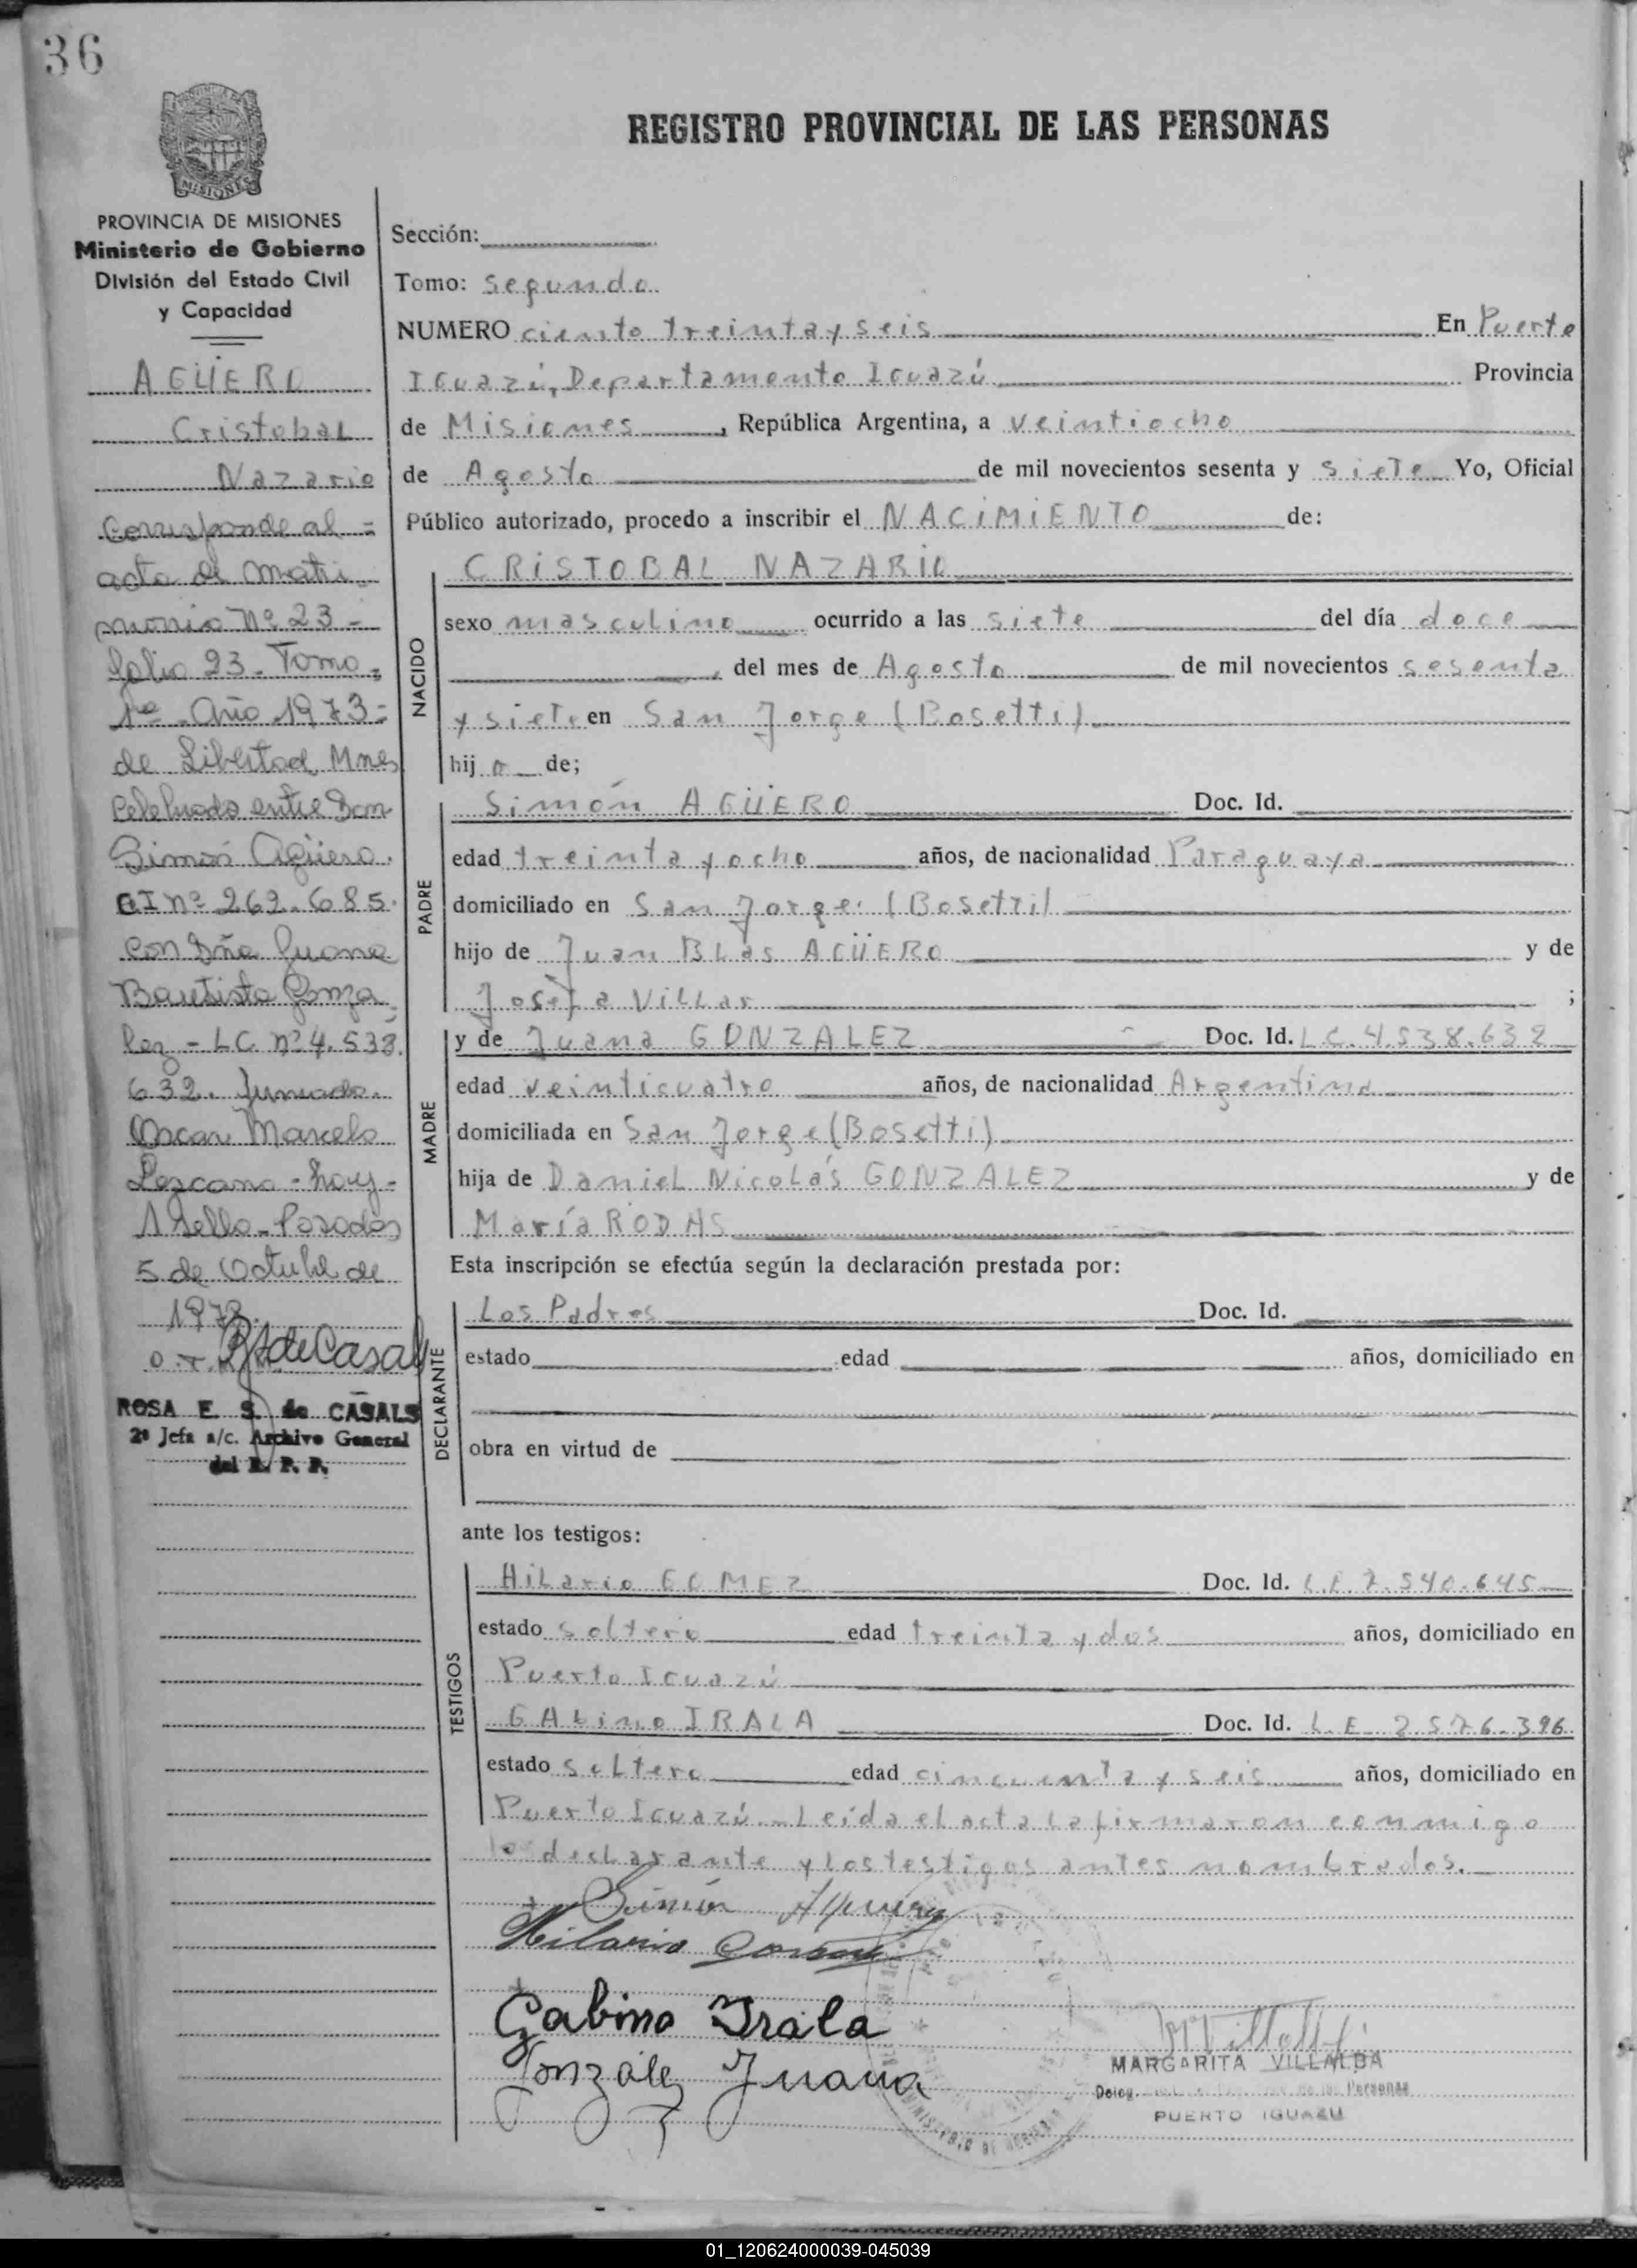 36
REGISTRO PROVINCIAL DE LAS PERSONAS
MISIONES
PROVINCIA DE MISIONES
Ministerio de Gobierno
División del Estado Civil
y Capacidad
AGÜERO
Cristobal
Nazario
Corresponde al =
acta de matri
monio Nº 23 -
folio 23 - Tomo =
1º - Año 1973 =
de Libertad, Mnes
Celebrado entre Don
Simón Agüero.
CI nº 262.685.
con Dña Juana
Bautista Gonza
lez - LC nº 4.538.
632. Firmado.
Oscar Marcelo
Lezcano - hay -
1 Sello - Posadas
5 de Octubre de
ROSA E. S. de CASALS
2ª Jefa a/c. Archivo General
del R. P. P.
Sección:
Tomo: segundo
NUMERO ciento treinta y seis En Puerto
Iguazú, Departamento Iguazú Provincia
de Misiones, República Argentina, a veintiocho
de Agosto de mil novecientos sesenta y siete Yo, Oficial
Público autorizado, procedo a inscribir el NACIMIENTO de:
NACIDO
CRISTOBAL NAZARIO
sexo masculino ocurrido a las siete del día doce
, del mes de Agosto de mil novecientos sesenta
y siete en San Jorge (Bosetti)
hijo de;
PADRE
Simón AGÜERO Doc. Id.
edad treinta y ocho años, de nacionalidad Paraguaya
domiciliado en San Jorge (Bosetti)
hijo de Juan Blas AGÜERO y de
Josefa Villar ;
MADRE
y de Juana GONZALEZ Doc. Id. L.C. 4.538.632
edad veinticuatro años, de nacionalidad Argentina
domiciliada en San Jorge (Bosetti)
hija de Daniel Nicolás GONZALEZ y de
María RODAS
Esta inscripción se efectúa según la declaración prestada por:
DECLARANTE
Los Padres Doc. Id.
estado edad años, domiciliado en
obra en virtud de
ante los testigos:
TESTIGOS
Hilario GOMEZ Doc. Id. L.E. 7.540.645
estado soltero edad treinta y dos años, domiciliado en
Puerto Iguazú
GAbino IRALA Doc. Id. L.E. 2.576.396
estado soltero edad cincuenta y seis años, domiciliado en
Puerto Iguazú. - Leída el acta la firmaron conmigo
los declarante y los testigos antes nombrados.
Simón Agüero
Hilario
Gabino Irala
González Juana
MARGARITA VILLALBA
Deleg. de las Personas
PUERTO IGUAZU
01_120624000039-045039